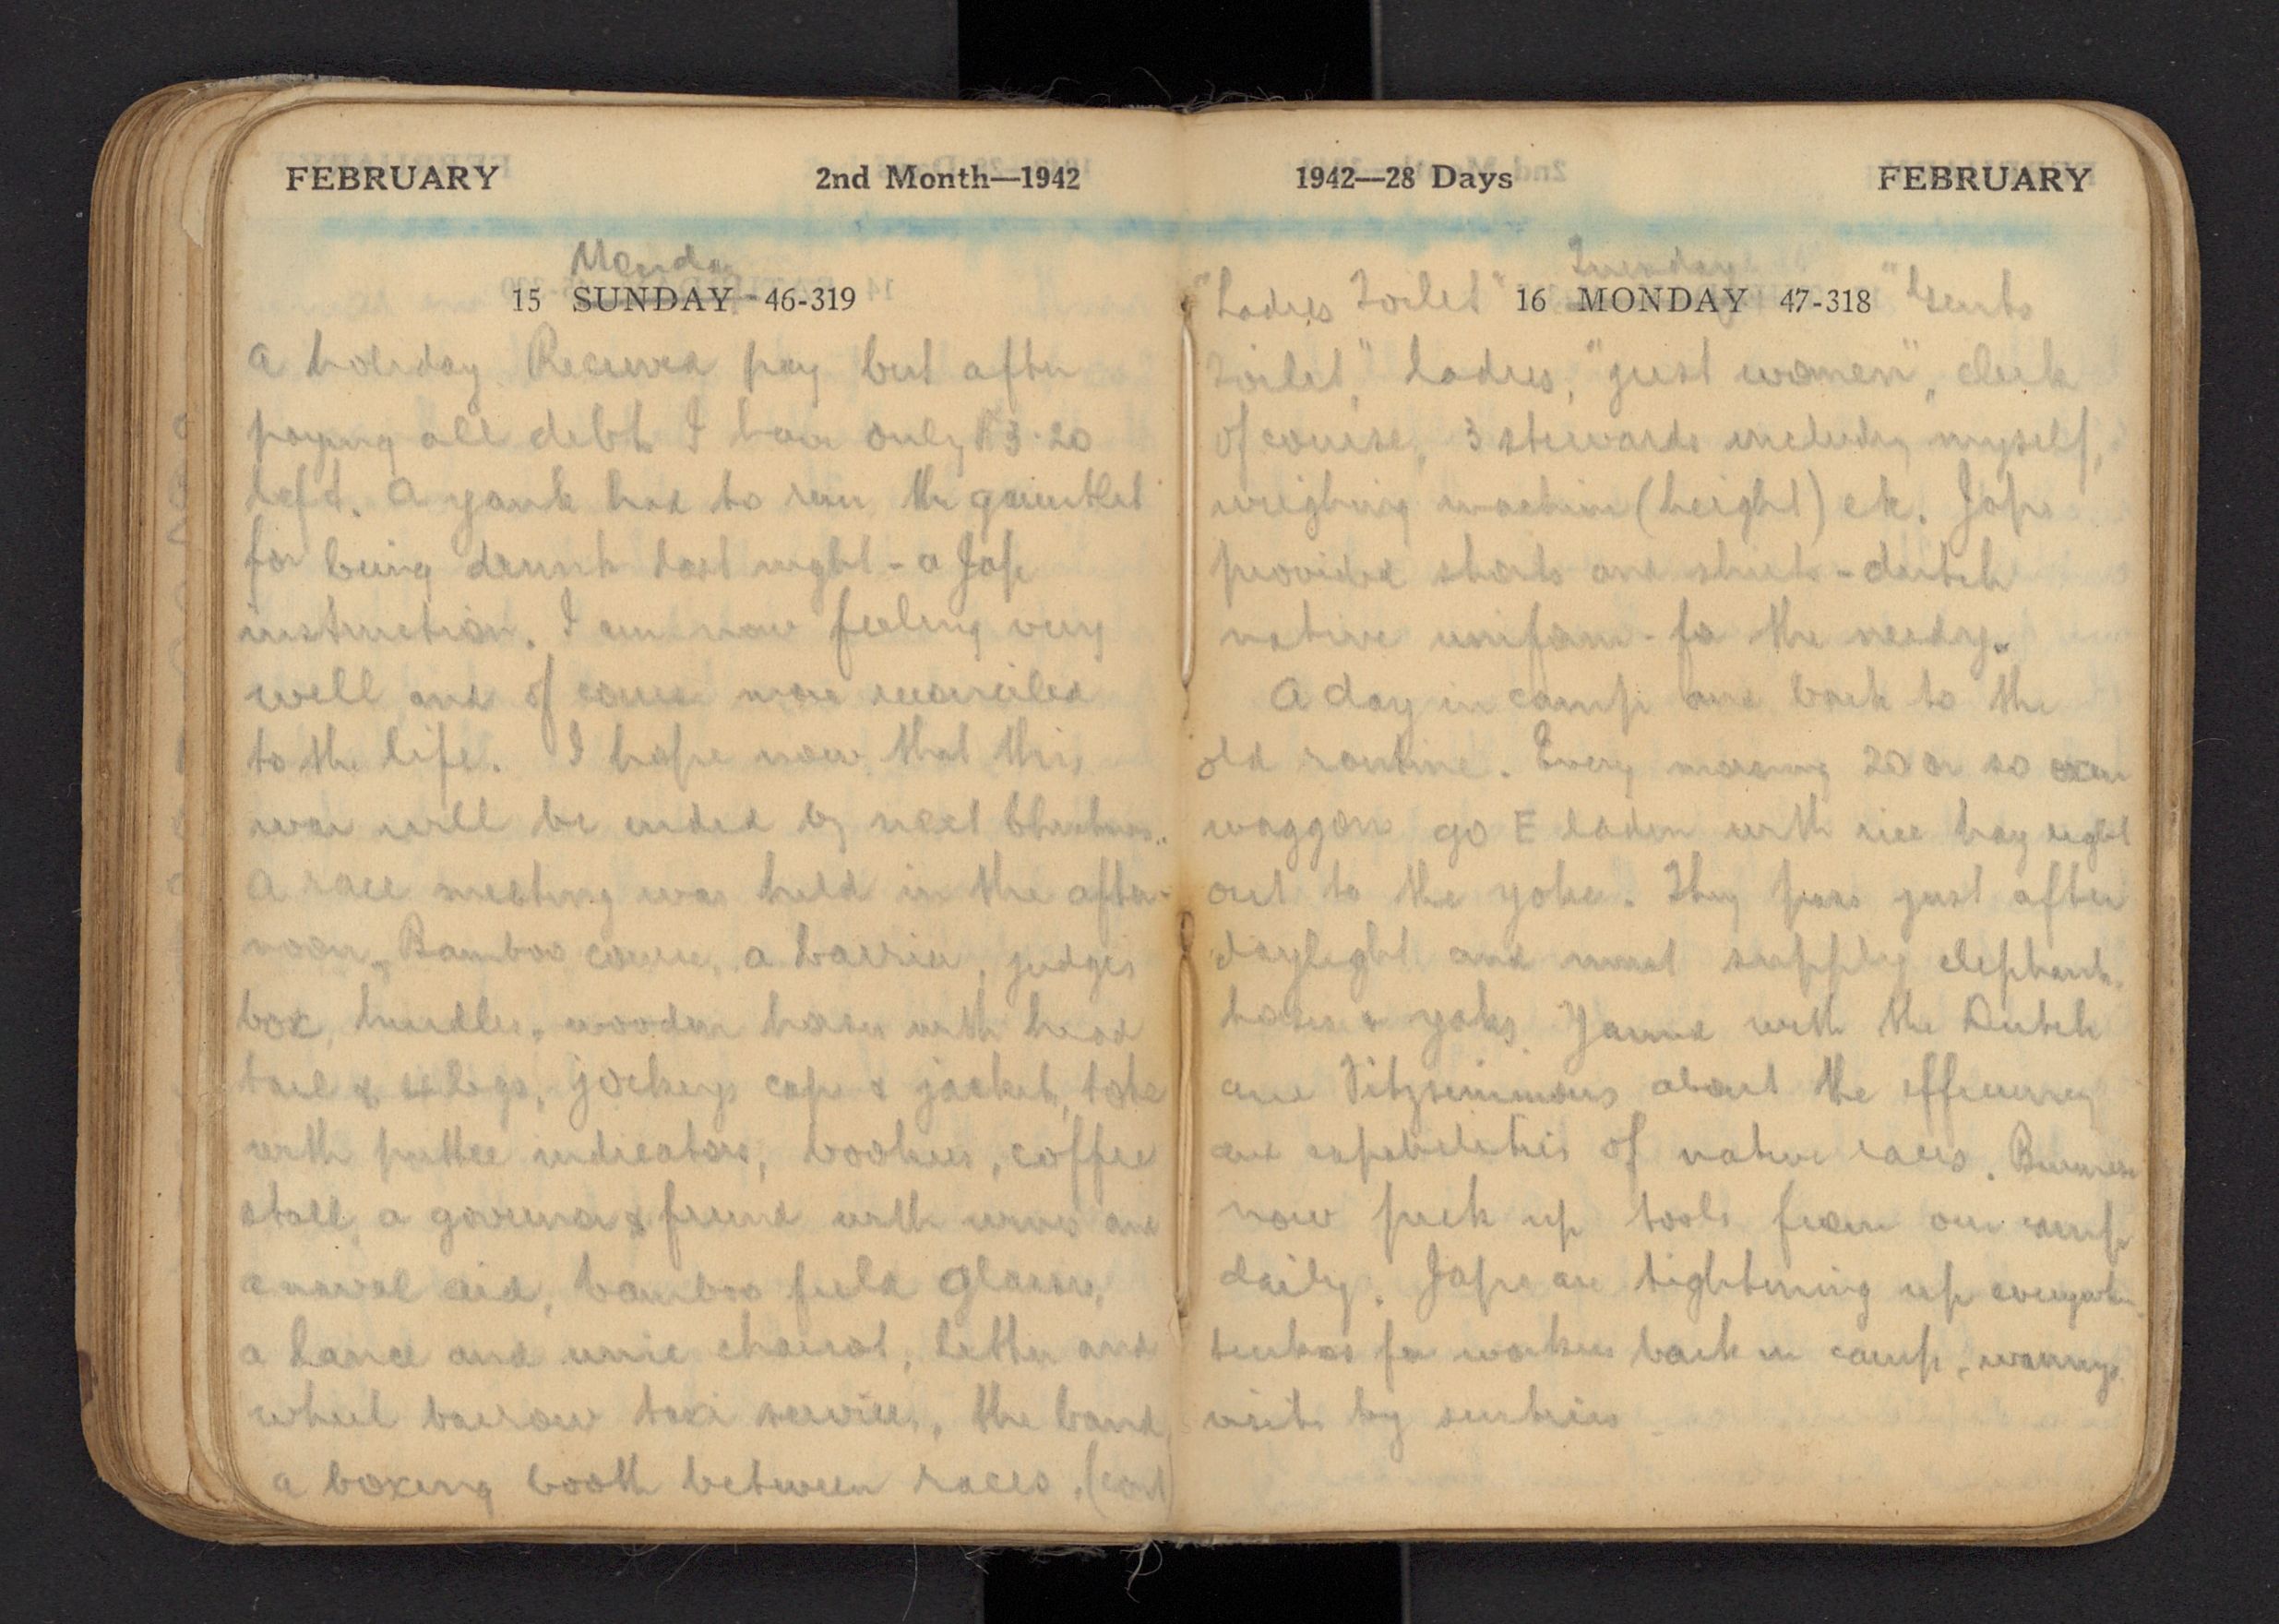 FEBRUARY 2nd Month—1942
Monday
15 SUNDAY - 46-319
A holiday. Received pay but after
paying all debts I have only R3.20
left. A yank had to run the gauntlet
for being drunk last night - a Jap
instruction. I am now feeling very
well and of course more reconciled
to the life. I hope now that this
war will be ended by next Christmas..
A race meeting was held in the after-
noon, Bamboo course, a barrier, judges
box, hurdles, wooden horses with head
tail & legs, jockeys caps & jackets, tote
with puttee indicators, bookies, coffee
stall, a governor & friend with wives and
a naval aid, bamboo field glasses,
a lance and unie chariot, litter and
wheel barrow taxi services, the band,
a boxing booth between races. (cont)
1942—28 Days FEBRUARY
Tuesday
"Ladies Toilet" 16 MONDAY 47-318 "Gents
Toilet," Ladies, "just women", clerk
of course, 3 stewards including myself,
weighing machine (height) etc. Japs
provided shorts and shirts - dutch
native uniform - for the needy.
A day in camp and back to the
old routine. Every morning 20 or so oxen
waggons go E laden with rice hay right
out to the yoke. They pass just after
daylight and must supply elephants,
horses & yaks. Yarned with the Dutch
and Fitzsimmons about the efficiency
and capabilities of native races. Burmese
now pick up tools from our camp
daily. Japs are tightening up everywhere
tenkos for workers back in camp,
visits by sentries